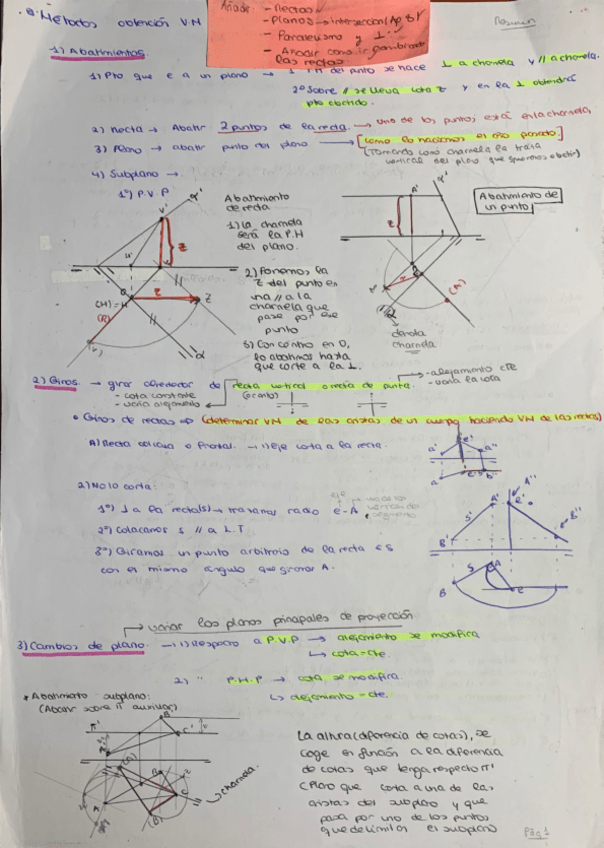 Añadir - Rectas
- Planos → intersección (Ap. 8)
- Paralelismo y ⊥.
- Añadir como
las rectas
Resumen
Métodos obtención VM
1) Abatimientos.
1) Pto que ∈ a un plano → 1º del punto se hace ⊥ a charnela y // a charnela.
2º Sobre // se lleva cota z y en la ⊥ obtendrá
pto abatido.
2) Recta → Abatir 2 puntos de la recta. → uno de los puntos está en la charnela,
3) Plano → abatir punto del plano → [como lo hacíamos en caso pasado.]
(Tomando como charnela la traza
vertical del plano que queremos abatir)
4) Subplano →
1º) P.V.P
Abatimiento
de recta
1) La charnela
será la P.H
del plano.
2) Ponemos la
z del punto en
una // a la
charnela que
pase por ese
punto
3) Con centro en O,
lo abatimos hasta
que corte a la ⊥.
Abatimiento de
un punto
denota
charnela
2) Giros. → girar alrededor de recta vertical o recta de punta.
- cota constante
- varía alejamiento
- alejamiento cte
- varía la cota
• Giros de rectas ⇒ (determinar VM de las aristas de un cuerpo haciendo VM de las rectas)
A) Recta oblicua o frontal. → 1) Eje corta a la recta.
2) No lo corta:
1º) ⊥ a la recta(s) → trazamos radio e-A
2º) Colocamos s // a L.T
3º) Giramos un punto arbitrario de la recta ∈ s
con el mismo ángulo que giramos A.
→ variar los planos principales de proyección
3) Cambios de plano → 1) Respecto a P.V.P → alejamiento se modifica
↳ cota = cte.
2) " P.H.P → cota se modifica.
↳ alejamiento = cte.
* Abatimiento subplano:
(Abatir sobre π auxiliar)
charnela.
La altura (diferencia de cotas), se
coge en función a la diferencia
de cotas que tenga respecto π'
(Plano que corta a una de las
aristas del subplano y que
pasa por uno de los puntos
que delimitan el subplano
Pág 1